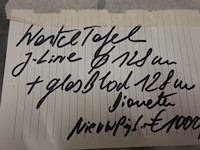 WortelTafel
J-Line Ø 128cm
+ glasBlad 128cm
diameter
Nieuwprijs: € 1000